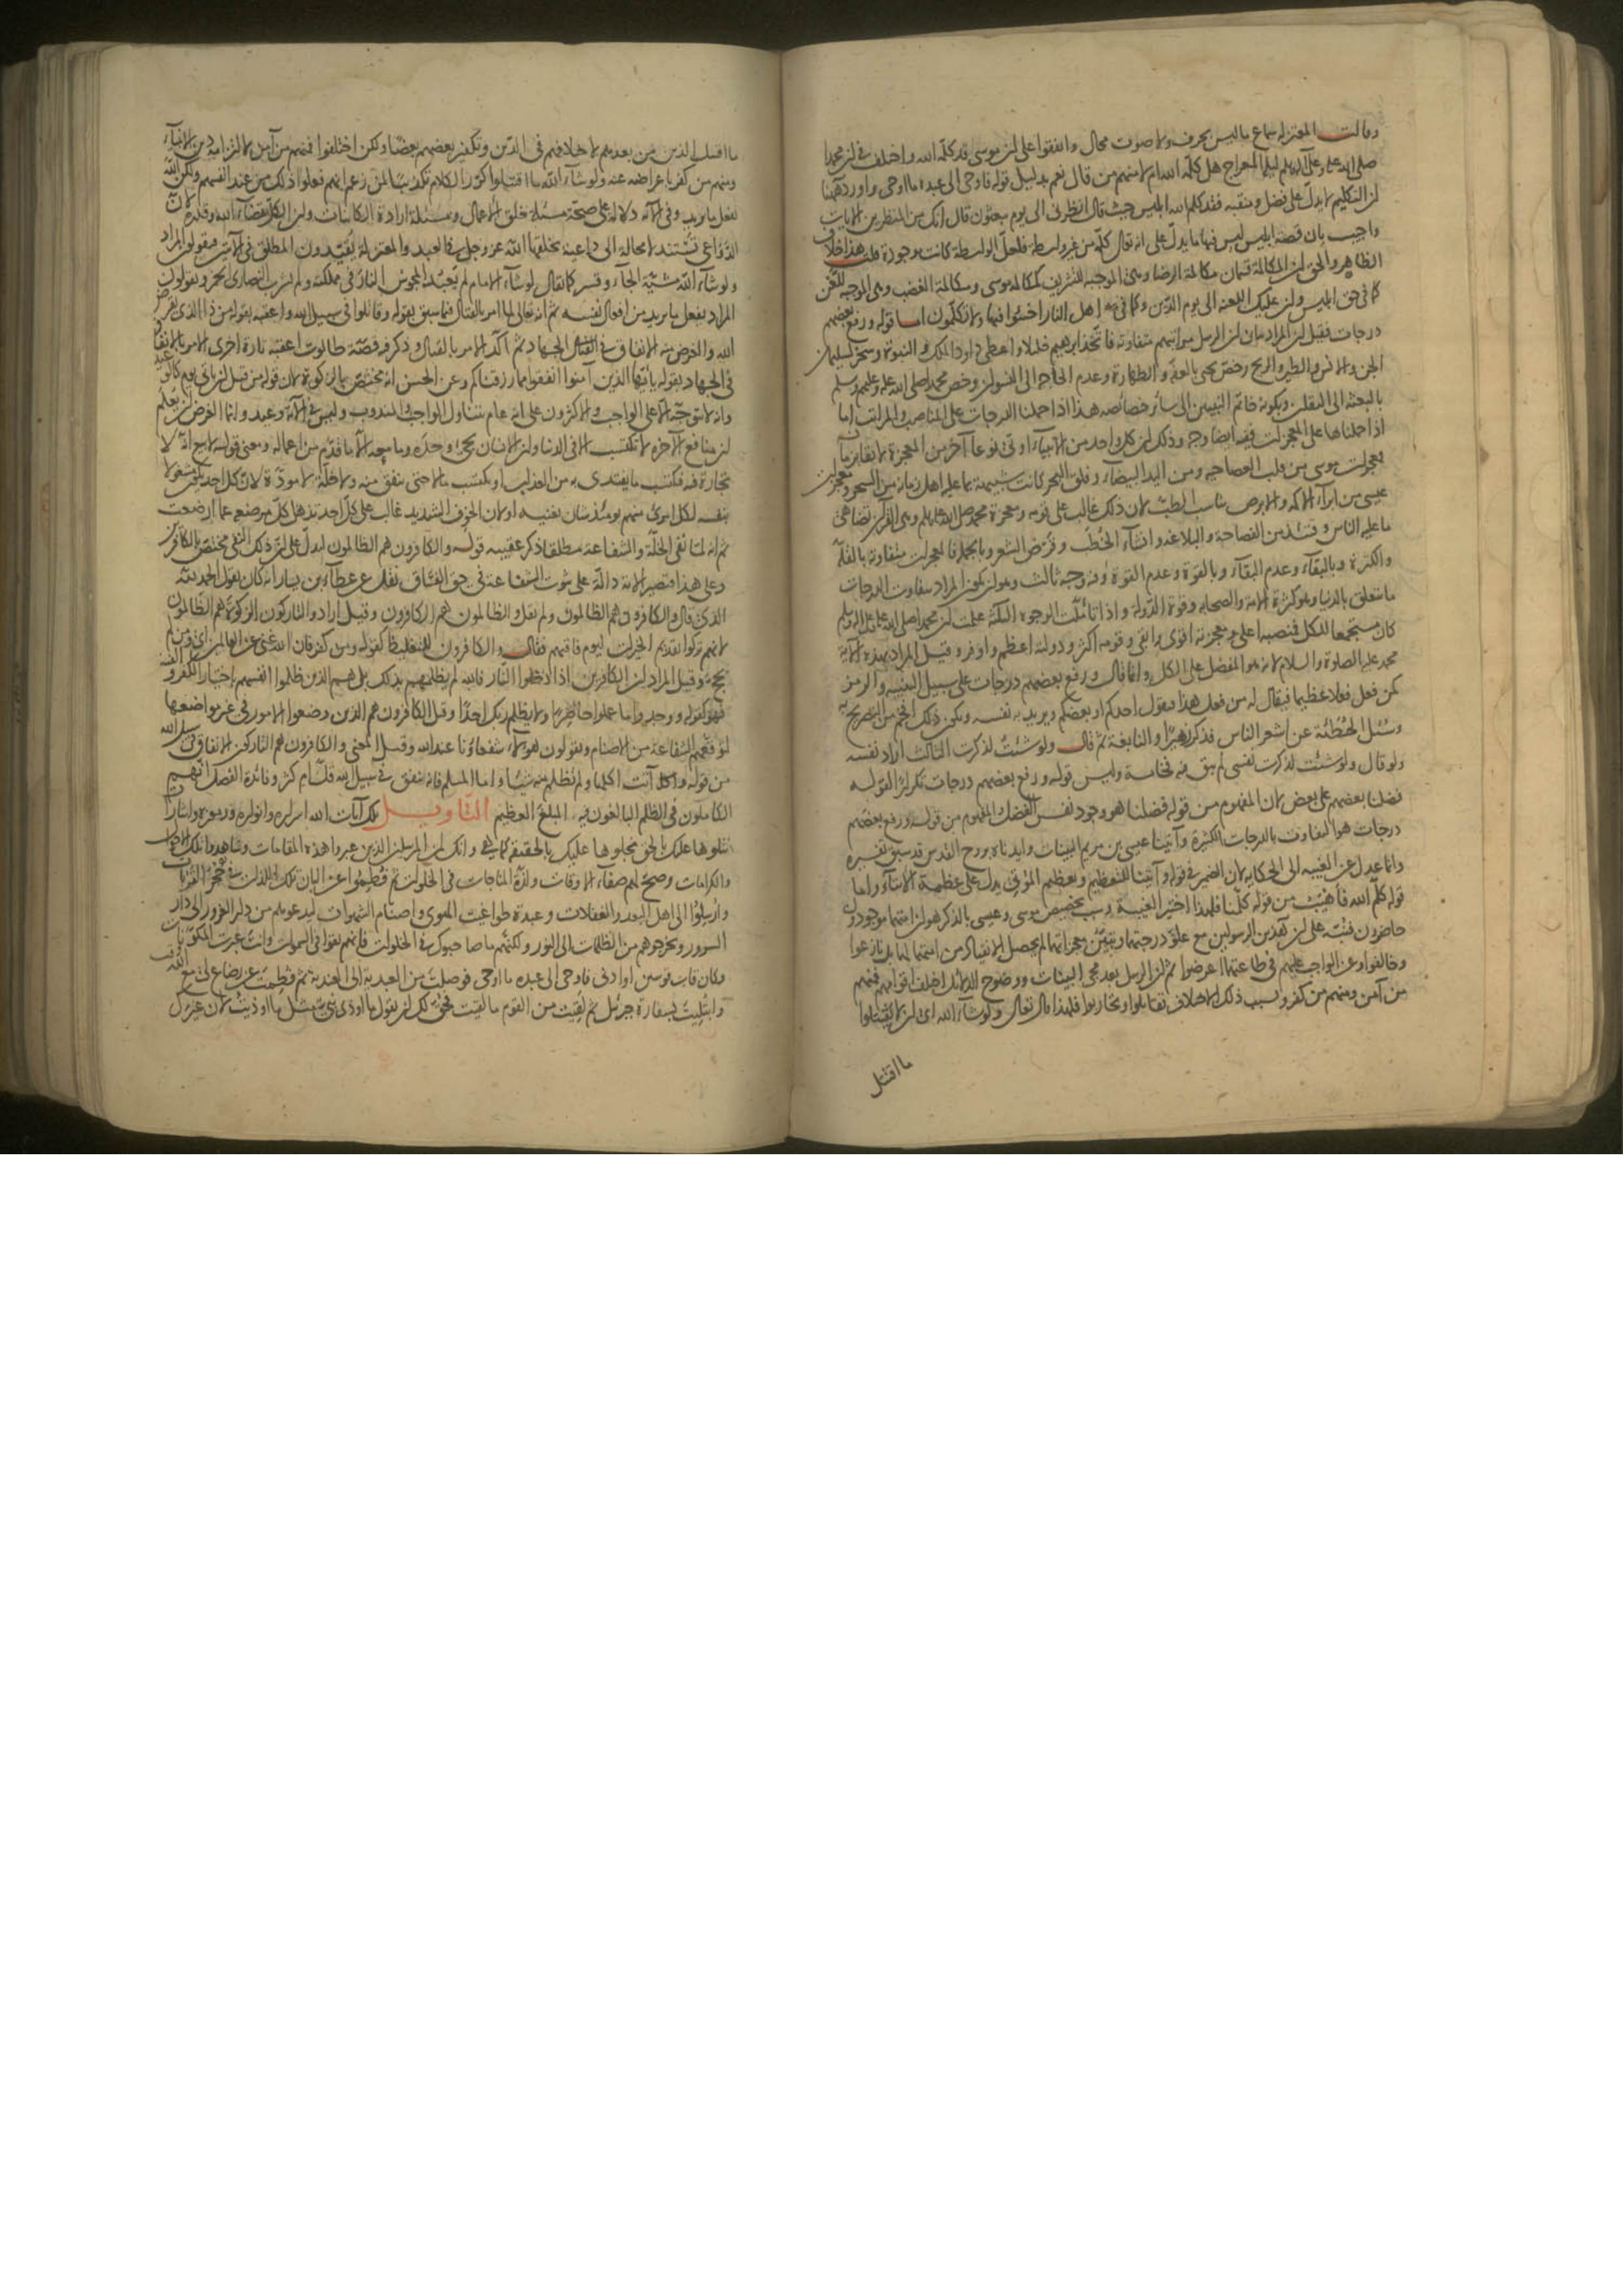 وقالت المعتزلة سماع ما ليس بحرف ولا صوت محال واتفقوا على ان موسى قد كلمه الله واختلف في ان محمدا
صلى الله عليه وعلى آله وسلم ليلة المعراج هل كلمه الله ام لا منهم من قال نعم بدليل قوله فاوحى الى عبده ما اوحى واورد ههنا
ان التكليم لا يدل على فضل ومنقبة فقد كلم الله ابليس حيث قال انظرني الى يوم يبعثون قال انك من المنظرين الايات
واجيب بان قصة ابليس ليس فيها ما يدل على انه تعالى كلمه من غير واسطة فلعل الواسطة كانت موجودة قلت هذا خلاف
الظاهر والحق ان المكالمة قسمان مكالمة الرضا وهي الموجبة للتشريف كمكالمة موسى ومكالمة الغضب وهي الموجبة للعن
كما في حق ابليس وان عليك اللعنة الى يوم الدين وكما في اهل النار اخسؤا فيها ولا تكلمون اما قوله ورفع بعضهم
درجات فقيل ان المراد بيان ان الرسل مراتبهم متفاوتة فاتخذ ابرهيم خليلا واعطى داود الملك والنبوة وسخر لسليمان
الجن والانس والطير والريح وخص يحيى بالعفة والطهارة وعدم الحاجة الى النسوان وخص محمدا صلى الله عليه وعليهم وسلم
بالبعثة الى الثقلين وبكونه خاتم النبيين الى سائر خصائصه هذا اذا حملنا الدرجات على المناصب والمراتب اما
اذا حملناها على المعجزات ففيه ايضا وجه وذلك ان كل واحد من الانبياء اوتي نوعا آخر من المعجزة لائقا بزمانه
فمعجزات موسى من قلب العصا حية ومن اليد البيضاء وفلق البحر كانت شبيهة بما عليه اهل زمانه من السحر ومعجزات
عيسى من ابراء الاكمه والابرص يناسب الطب لان ذلك غالب على قومه ومعجزة محمد صلى الله عليه وسلم وهي القرآن تضاهي
ما عليه الناس وقتئذ من الفصاحة والبلاغة وانشاء الخطب وقرض الشعر وبالجملة فالمعجزات متفاوتة بالقلة
والكثرة وبالبقاء وعدم البقاء وبالقوة وعدم القوة وفيه وجه ثالث وهو ان يكون المراد بتفاوت الدرجات
ما يتعلق بالدنيا وهو كثرة الامة والصحابة وقوة الدولة واذا تأملت الوجوه الثلثة علمت ان محمدا صلى الله عليه وعلى آله وسلم
كان مستجمعا للكل فمنصبه اعلى ومعجزته اقوى وابقى وقومه اكثر ودولته اعظم واوفر وقيل المراد بهذه الآية
محمد عليه الصلوة والسلام لانه هو المفضل على الكل وانما قال ورفع بعضهم درجات على سبيل التنبيه والرمز
كمن فعل فعلا عظيما فيقال له من فعل هذا فيقول احدكم او بعضكم ويريد به نفسه ويكون ذلك افخم من التصريح به
وسئل الحطيئة عن اشعر الناس فذكر زهيرا والنابغة ثم قال ولو شئت لذكرت الثالث اراد نفسه
ولو قال ولو شئت لذكرت نفسي لم يبق فيه فخامة وليس قوله ورفع بعضهم درجات تكرارا لقوله
فضلنا بعضهم على بعض لان المفهوم من قوله فضلنا هو وجود نفس الفضل والمفهوم من قوله ورفع بعضهم
درجات هو التفاوت بالدرجات الكثيرة وآتينا عيسى بن مريم البينات وايدناه بروح القدس قد سبق تفسيره
وانما عدل عن الغيبة الى الحكاية لان الضمير في قوله وآتينا للتعظيم وتعظيم المؤتي يدل على عظمة الايتاء واما
قوله كلم الله فأهيب من قوله كلمنا فلهذا اختير الغيبة وسبب تخصيص موسى وعيسى بالذكر هو ان امتهما موجودون
حاضرون فنبه على ان هذين الرسولين مع علو درجتهما وتبين معجزاتهما لم يحصل الانقياد من امتهما لهما بل نازعوا
وخالفوا وعن الواجب عليهم في طاعتهما اعرضوا ثم ان الرسل بعد مجيء البينات ووضوح الدلائل اختلف اقوامهم فمنهم
من آمن ومنهم من كفر وبسبب ذلك الاختلاف تقاتلوا وتحاربوا فلهذا قال تعالى ولو شاء الله اي ان لا يقتتلوا
ما اقتتل
ما اقتتل الذين من بعدهم لاختلافهم في الدين وتكفير بعضهم بعضا ولكن اختلفوا فمنهم من آمن لالتزامه دين الانبياء
ومنهم من كفر باعراضه عنه ولو شاء الله ما اقتتلوا كرر الكلام تكذيبا لمن زعم انهم فعلوا ذلك من عند انفسهم ولكن الله
يفعل ما يريد وفي الآية دلالة على صحة مسئلة خلق الاعمال ومسئلة ارادة الكائنات وان الكل بقضاء الله وقدره لان
الدواعي تستند لا محالة الى داعية يخلقها الله عز وجل في العبد والمعتزلة يقيدون المطلق في الآيتين فيقولون المراد
ولو شاء الله مشية الجاء وقسر كما يقال لو شاء الامام لم يعبد المجوس النار في مملكته ولم تشرب النصارى الخمر ويقولون
المراد يفعل ما يريد من افعال نفسه ثم انه تعالى لما امر بالقتال فيما سبق بقوله وقاتلوا في سبيل الله واعقبه بقوله من ذا الذي يقرض
الله والغرض منه الانفاق في الجهاد ثم اكد الامر بالقتال وذكر فيه قصة طالوت اعقبه تارة اخرى الامر بالانفاق
في الجهاد بقوله يا ايها الذين آمنوا انفقوا مما رزقناكم وعن الحسن انه مختص بالزكوة لان قوله من قبل ان يأتي يوم كالوعيد
وانه لا يتوجه الا على الواجب والاكثرون على انه عام يتناول الواجب والمندوب وليس في الآية وعيد وانما الغرض ان يعلم
ان منافع الآخرة لا تكتسب الا في الدنيا وان الانسان يجيء وحده وما معه الا ما قدم من اعماله ومعنى قوله لا بيع انه لا
تجارة فيه فيكتسب ما يفتدي به من العذاب او يكتسب مالا حتى ينفق منه ولا خلة لا مودة لان كل احد يكون مشغولا
بنفسه لكل امرئ منهم يومئذ شأن يغنيه او لان الخوف الشديد غالب على كل احد تذهل كل مرضعة عما ارضعت
ثم انه لما نفى الخلة والشفاعة مطلقا ذكر عقيبه قوله والكافرون هم الظالمون ليدل على ان ذلك النفي مختص بالكافرين
وعلى هذا فتصير الآية دالة على ثبوت الشفاعة في حق الفساق نقل عن عطاء بن يسار انه كان يقول الحمد لله
الذي قال والكافرون هم الظالمون ولم يقل والظالمون هم الكافرون وقيل اراد والتاركون الزكوة هم الظالمون
لانهم تركوا تقديم الخيرات ليوم فاقتهم فقال والكافرون للتغليظ كقوله ومن كفر فان الله غني عن العالمين اي ومن لم
يحج وقيل المراد ان الكافرين اذا ادخلوا النار فالله لم يظلمهم بذلك بل هم الذين ظلموا انفسهم باختيار الكفر والفسق
فهو كقوله ووجدوا ما عملوا حاضرا ولا يظلم ربك احدا وقيل الكافرون هم الذين وضعوا الامور في غير مواضعها
لتوقعهم الشفاعة من الاصنام ويقولون هؤلاء شفعاؤنا عند الله وقيل المعنى والكافرون هم التاركون الانفاق في سبيل الله
من قوله وآتت اكلها ولم تظلم منه شيئا واما المسلم فانه ينفق في سبيل الله قل ام كثر وفائدة الفصل انهم
الكاملون في الظلم البالغون فيه المبلغ العظيم التأويل تلك آيات الله اسراره وانواره ورموزه واشاراته
نتلوها عليك بالحق نجلوها عليك بالحقيقة كما هي وانك لمن المرسلين الذين عبروا هذه المقامات وشاهدوا تلك الاحوال
والكرامات وصح لهم صفاء الاوقات ولذة المناجات في الخلوات ثم فطموا عن البان تلك اللذات في حجر القربات
وارسلوا الى اهل البعد والغفلات وعبدة طواغيت الهوى واصنام الشهوات ليدعوهم من دار الغرور الى دار
السرور ويخرجوهم من الظلمات الى النور ولكنهم ما صاحبوك في الخلوات فانهم بقوا في السموات وانت عبرت المكونات
وكان قاب قوسين او ادنى فاوحى الى عبده ما اوحى فوصلت من العبدية الى العندية ثم فطمت عن رضاع لي مع الله وقت
وابتليت بسفارة جبرئيل ثم لقيت من القوم ما لقيت فحق لك ان تقول ما اوذي نبي مثل ما اوذيت لان عزل